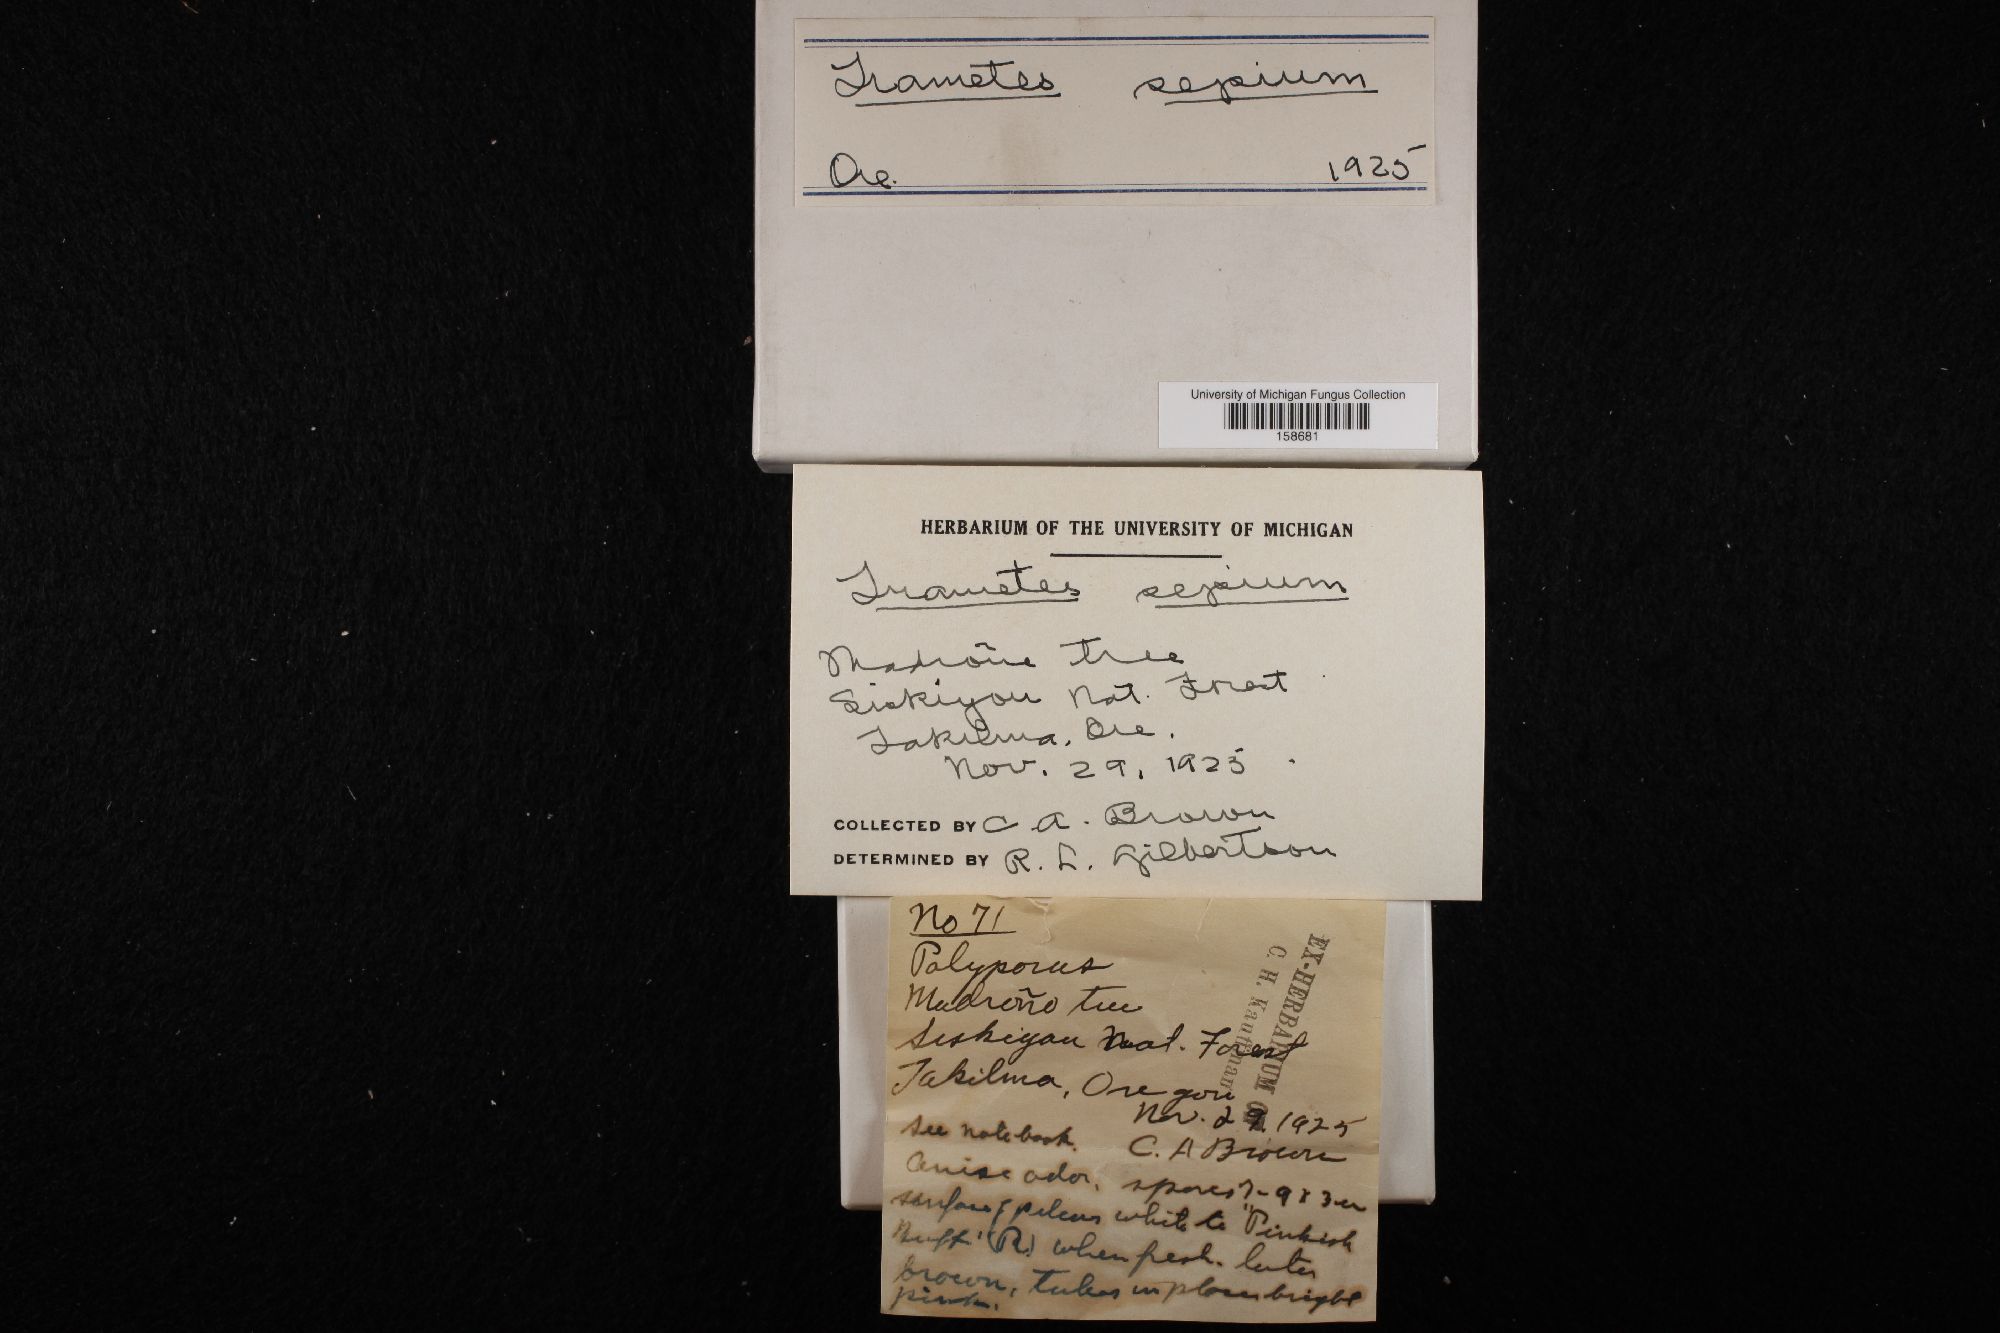 Trametes sepium
Ore. 1925
University of Michigan Fungus Collection
158681
HERBARIUM OF THE UNIVERSITY OF MICHIGAN
Trametes sepium
Madroñe tree
Siskiyou Nat. Forest
Takilma, Ore.
Nov. 29, 1925
COLLECTED BY C A. Brown
DETERMINED BY R. L. Gilbertson
No 71
Polyporus
Madroño tree
Siskiyou Nat. Forest
Takilma, Oregon
Nov. 29, 1925
See notebook. C. A Brown
Anise odor. spores 7-9 x 3 u
surface of pileus white to "Pinkish
Buff" (R.) when fresh. later
brown, tubes in places bright
pink.
EX-HERBARIUM OF
C. H. Kauffman